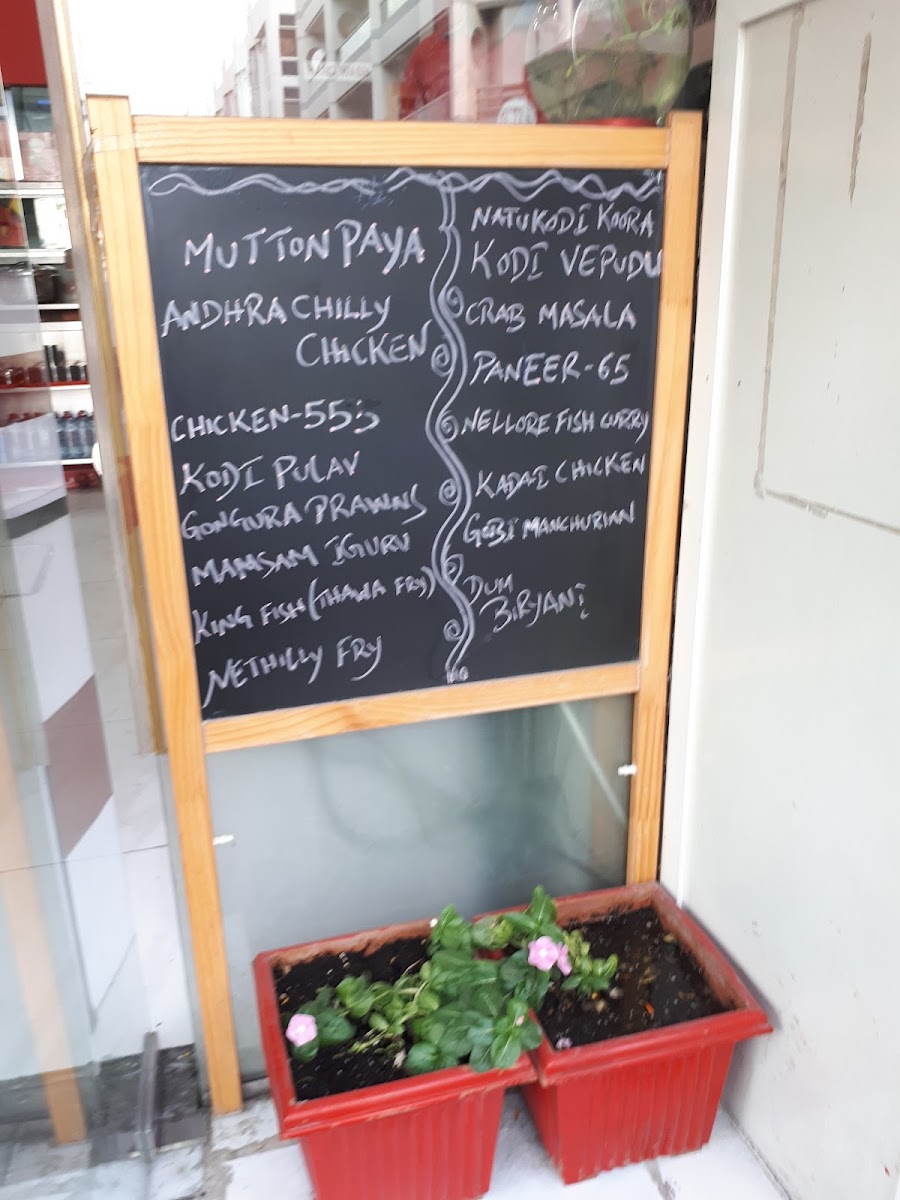 MUTTON PAYA
ANDHRA CHILLY
CHICKEN
CHICKEN-555
KODI PULAV
GONGURA PRAWNS
MAMSAM IGURU
KING FISH (THAWA FRY)
NETHILLY FRY
NATUKODI KOORA
KODI VEPUDU
CRAB MASALA
PANEER-65
NELLORE FISH CURRY
KADAI CHICKEN
GOBI MANCHURIAN
DUM
BIRYANI